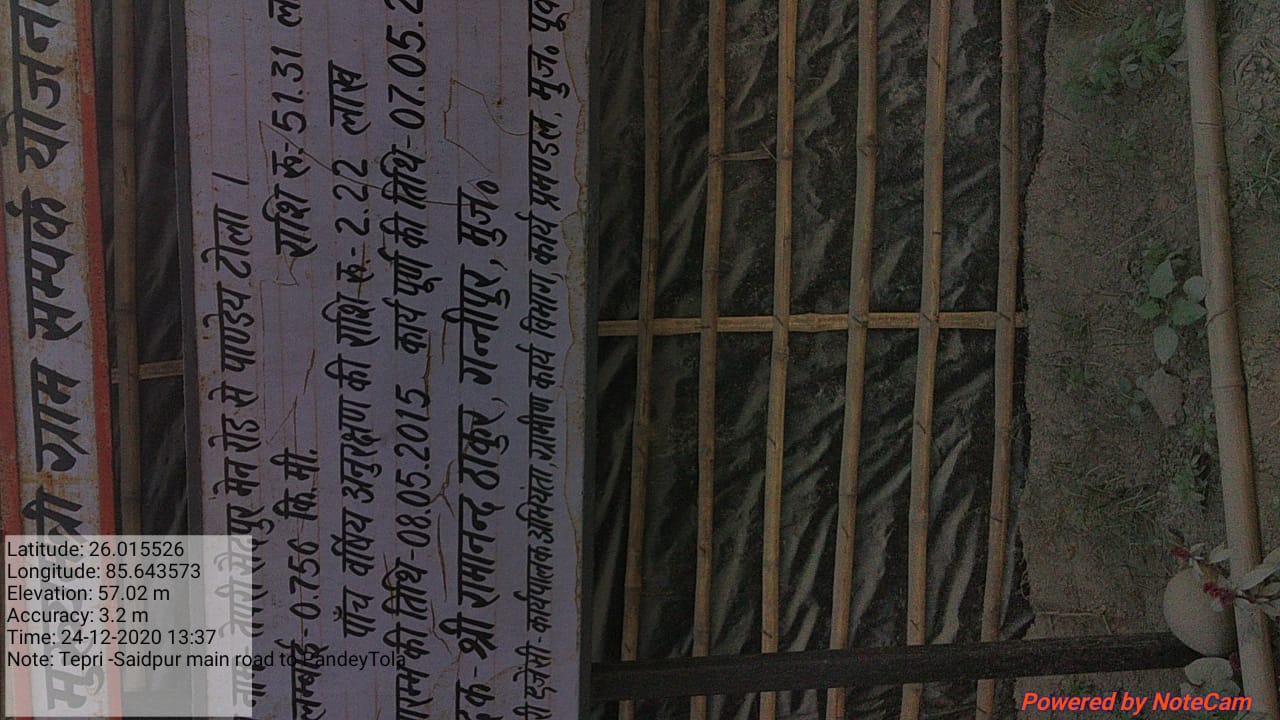 ग्राम सम्पर्क योजना
सैदपुर मेन रोड से पाण्डेय टोला ।
लम्बाई - 0.756 कि.मी. राशि रू-51.31
पाँच वर्षिय अनुरक्षण की राशि रू- 2.22 लाख
की तिथि-08.05.2015 कार्य पूर्ण की तिथि-07.05.2
श्री रामानन्द ठाकुर, गन्नीपुर, मुज०
एजेंसी - कार्यपालक अभियंता, ग्रामीण कार्य विभाग, कार्य प्रमण्डल, मुज०
Latitude: 26.015526
Longitude: 85.643573
Elevation: 57.02 m
Accuracy: 3.2 m
Time: 24-12-2020 13:37
Note: Tepri -Saidpur main road to PandeyTola
Powered by NoteCam